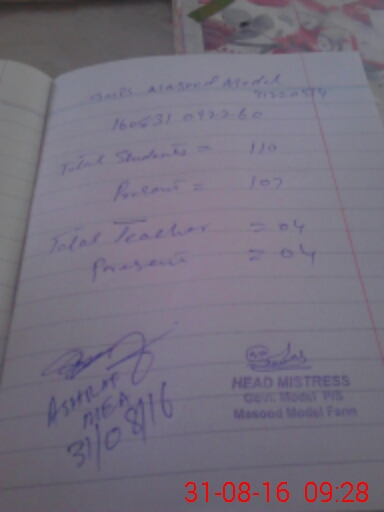 GMPS Masood Model
160831 092260
Total Students = 110
Present = 107
Total Teacher = 04
Present = 04
ASHRAF
MEA
31/08/16
HEAD MISTRESS
Govt. Model P/S
Masood Model Farm
31-08-16 09:28